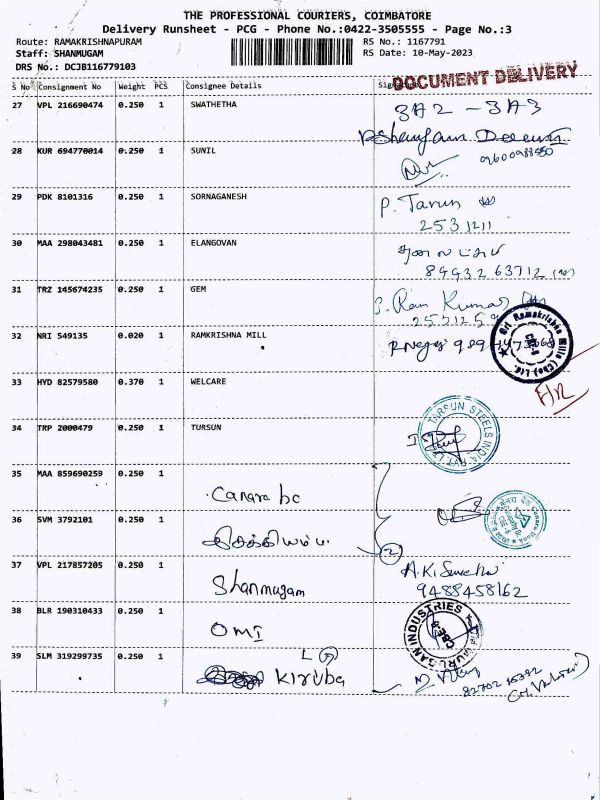 THE PROFESSIONAL COURIERS, COIMBATORE
Delivery Runsheet - PCG - Phone No.:0422-3505555 - Page No.:3
Route: RAMAKRISHNAPURAM
Staff: SHANMUGAM
DRS No.: DCJB116779103
RS No.: 1167791
RS Date: 10-May-2023
DOCUMENT DELIVERY
S No Consignment No Weight PCS Consignee Details
27 VPL 216690474 0.250 1 SWATHETHA 3A2 - 3A3
28 KUR 694770014 0.250 1 SUNIL
29 PDK 8101316 0.250 1 SORNAGANESH P. Tarun
2531211
30 MAA 298043481 0.250 1 ELANGOVAN
31 TRZ 145674235 0.250 1 GEM Ram Kumar
32 NRI 549135 0.020 1 RAMKRISHNA MILL
Sri. Ramakrishna Mills (Cbe) Ltd.
33 HYD 82579580 0.370 1 WELCARE
34 TRP 2000479 0.250 1 TURSUN
TARSUN STEELS INDIA PVT. LTD
35 MAA 859690259 0.250 1 Canara bc
36 SVM 3792101 0.250 1
2
Canara Bank
37 VPL 217857205 0.250 1 Shanmugam
9488458162
38 BLR 190310433 0.250 1 OMI
INDUSTRIES
39 SLM 319299735 0.250 1 Kiruba